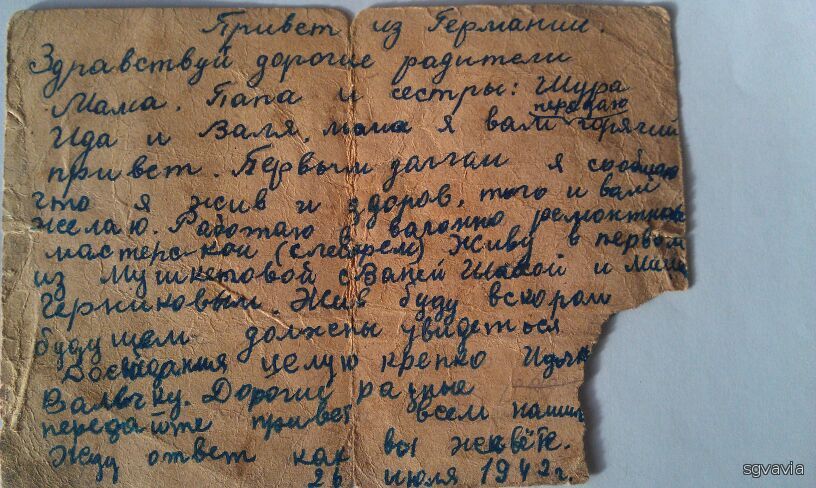 Привет из Германии.
Здравствуй дорогие радители
Мама. Папа и сестры: Шура
передаю
Ида и Валя. мама я вам горячий
привет. Первым далгам я сообщаю
что я жив и здоров, того и вам
желаю. Работаю в вагонно ремонтной
мастерской (слесарем) Живу в первом
из Мушкетовой с Ваней и
Черниковым. Жив буду вскором
будущем должены увидеться
Досвидания целую крепко Идочку
Валечку. Дорогие
передайте привет всем нашим
Жду ответ как вы живёте.
26 июля 1942г.
sgvavia